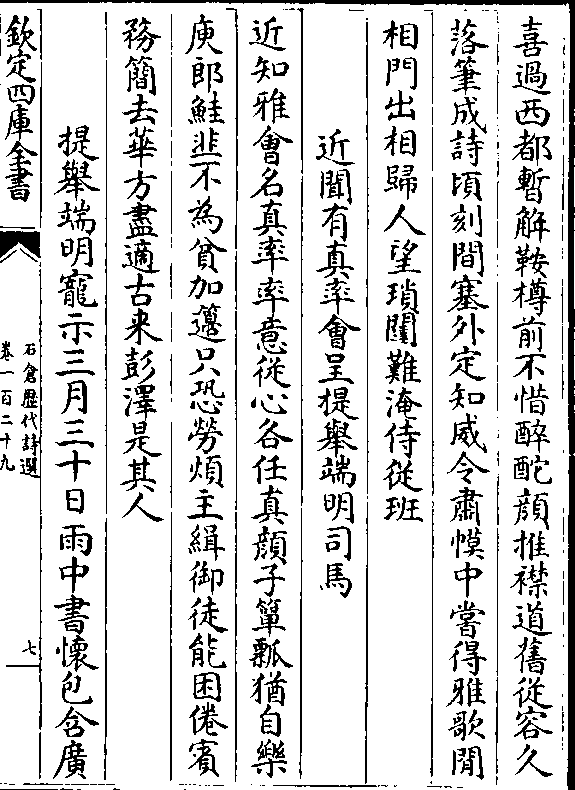 喜過西都暫解鞍樽前不惜醉酡顔推襟道舊從容久
落筆成詩頃刻間塞外定知威令肅幙中嘗得雅歌閒
相門出相歸人望瑣闥難淹侍從班
近聞有真率會呈提舉端明司馬
近知雅會名真率率意從心各任真顔子簞瓢猶自樂
庾郎鮭韭不為貧加籩只恐勞煩主緝御徒能困倦賓
務簡去華方盡適古来彭澤是其人
提舉端明寵示三月三十日雨中書懐包含廣
欽定四庫全書
石倉歷代詩選
卷一百二十九
七